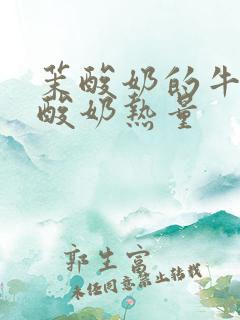 茉酸奶的牛
酸奶热量
郭生富
未经同意禁止转载